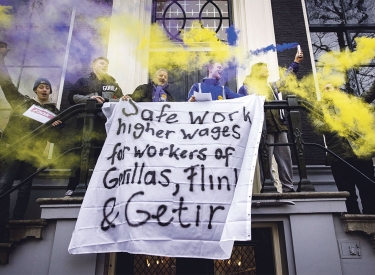 Safe work
higher wages
for workers of
Gorillas, Flink
& Getir